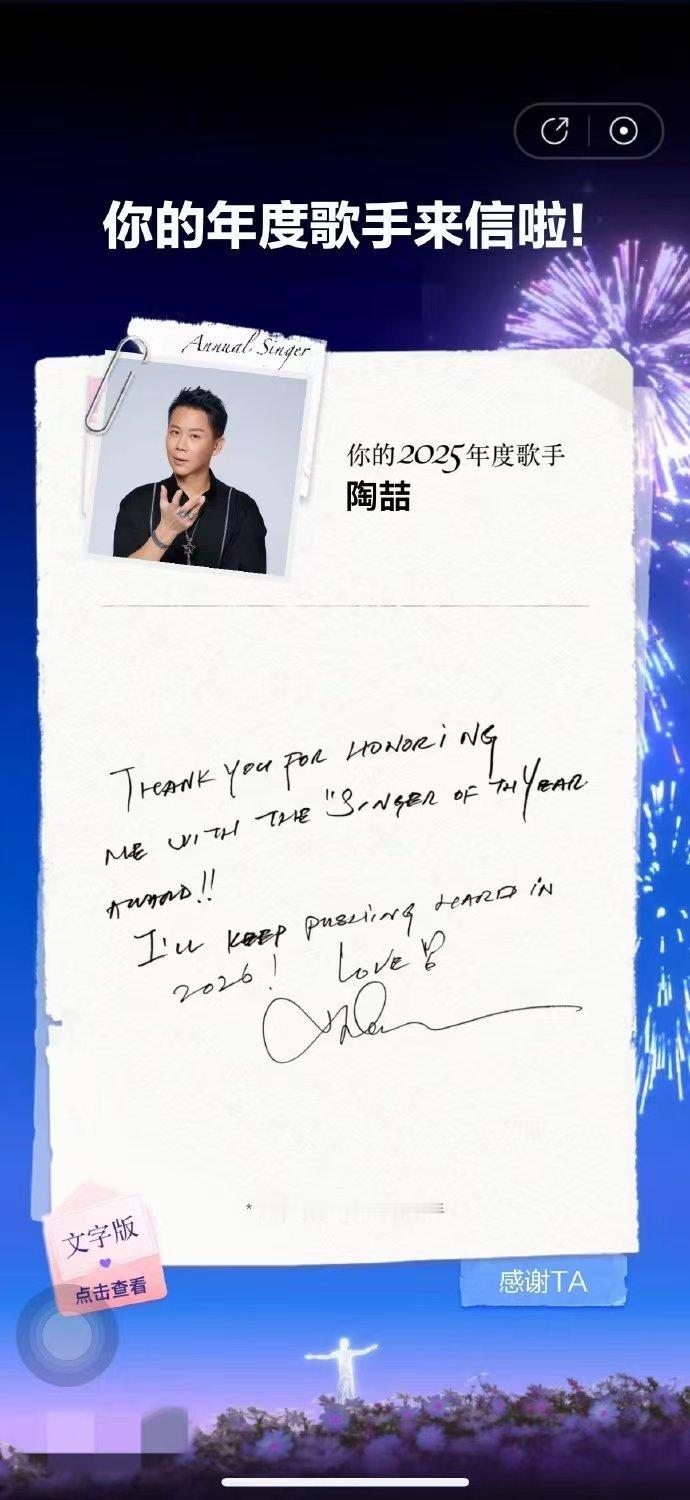 你的年度歌手来信啦!
Annual Singer
你的2025年度歌手
陶喆
THANK YOU FOR HONORING
ME WITH THE "SINGER OF TH YEAR
AWARD!!
I'LL KEEP PUSHING HARD IN
2026! LOVE
*
文字版
点击查看
感谢TA